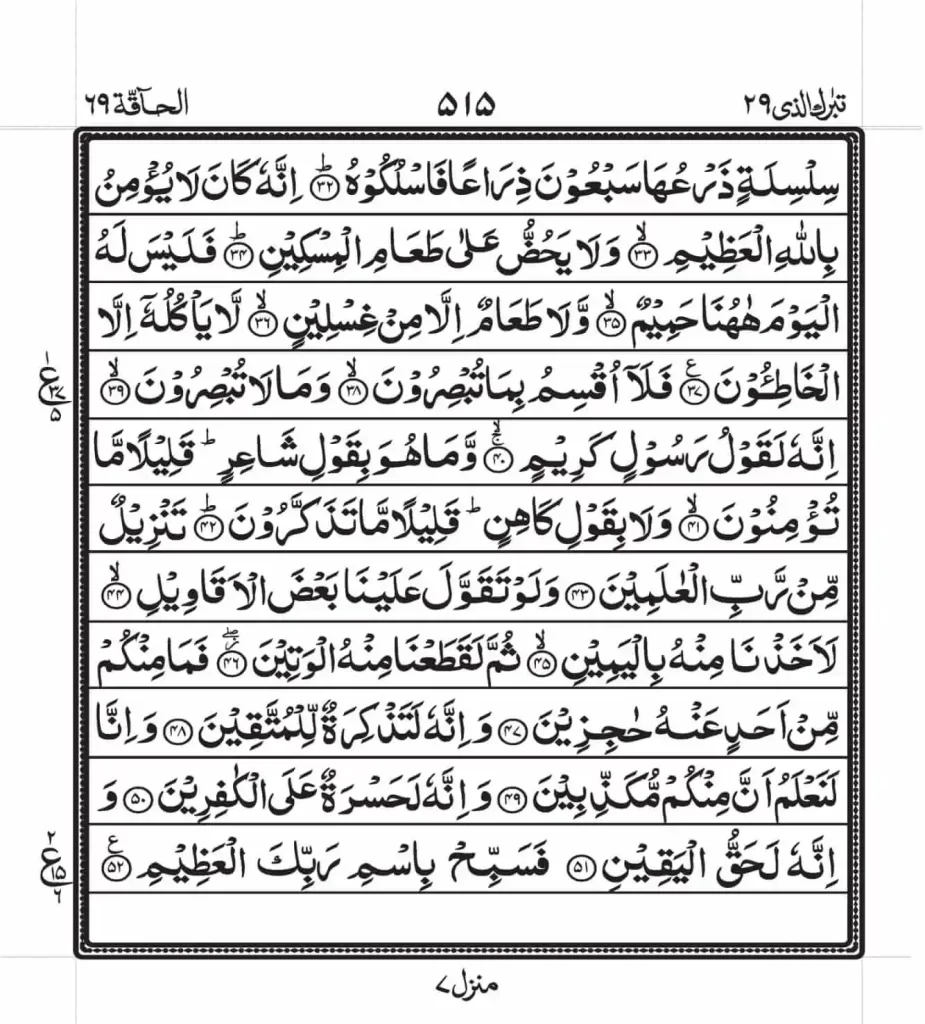 تبٰرك الذى ٢٩ ٥١٥ الحآقّة ٦٩
سِلۡسِلَةٍ ذَرۡعُهَا سَبۡعُوۡنَ ذِرَاعًا فَاسۡلُكُوۡهُ ؕ‏ ﴿۳۲﴾ اِنَّهٗ كَانَ لَا يُؤۡمِنُ
بِاللّٰهِ الۡعَظِيۡمِۙ‏ ﴿۳۳﴾ وَلَا يَحُضُّ عَلٰى طَعَامِ الۡمِسۡكِيۡنِؕ‏ ﴿۳۴﴾ فَلَيۡسَ لَهُ
الۡيَوۡمَ هٰهُنَا حَمِيۡمٌۙ‏ ﴿۳۵﴾ وَّلَا طَعَامٌ اِلَّا مِنۡ غِسۡلِيۡنٍۙ‏ ﴿۳۶﴾ لَّا يَاۡكُلُهٗۤ اِلَّا
الۡخٰطِـُٔوۡنَ ع‏ ﴿۳۷﴾ فَلَاۤ اُقۡسِمُ بِمَا تُبۡصِرُوۡنَۙ‏ ﴿۳۸﴾ وَمَا لَا تُبۡصِرُوۡنَۙ‏ ﴿۳۹﴾
١ ع ٣٧ ٥
اِنَّهٗ لَقَوۡلُ رَسُوۡلٍ كَرِيۡمٍ ۚۙ‏ ﴿۴۰﴾ وَّمَا هُوَ بِقَوۡلِ شَاعِرٍؕ قَلِيۡلًا مَّا
تُؤۡمِنُوۡنَۙ‏ ﴿۴۱﴾ وَلَا بِقَوۡلِ كَاهِنٍؕ قَلِيۡلًا مَّا تَذَكَّرُوۡنَؕ‏ ﴿۴۲﴾ تَنۡزِيۡلٌ
مِّنۡ رَّبِّ الۡعٰلَمِيۡنَ‏ ﴿۴۳﴾ وَلَوۡ تَقَوَّلَ عَلَيۡنَا بَعۡضَ الۡاَقَاوِيۡلِۙ‏ ﴿۴۴﴾
لَاَخَذۡنَا مِنۡهُ بِالۡيَمِيۡنِۙ‏ ﴿۴۵﴾ ثُمَّ لَقَطَعۡنَا مِنۡهُ الۡوَتِيۡنَ ۖ‏ ﴿۴۶﴾ فَمَا مِنۡكُمۡ
مِّنۡ اَحَدٍ عَنۡهُ حٰجِزِيۡنَ‏ ﴿۴۷﴾ وَاِنَّهٗ لَتَذۡكِرَةٌ لِّلۡمُتَّقِيۡنَ‏ ﴿۴۸﴾ وَاِنَّا
لَنَعۡلَمُ اَنَّ مِنۡكُمۡ مُّكَذِّبِيۡنَ‏ ﴿۴۹﴾ وَاِنَّهٗ لَحَسۡرَةٌ عَلَى الۡكٰفِرِيۡنَ‏ ﴿۵۰﴾ وَ
اِنَّهٗ لَحَقُّ الۡيَقِيۡنِ‏ ﴿۵۱﴾ فَسَبِّحۡ بِاسۡمِ رَبِّكَ الۡعَظِيۡمِ ع‏ ﴿۵۲﴾
٢ ع ١٥ ٦
منزل ٧